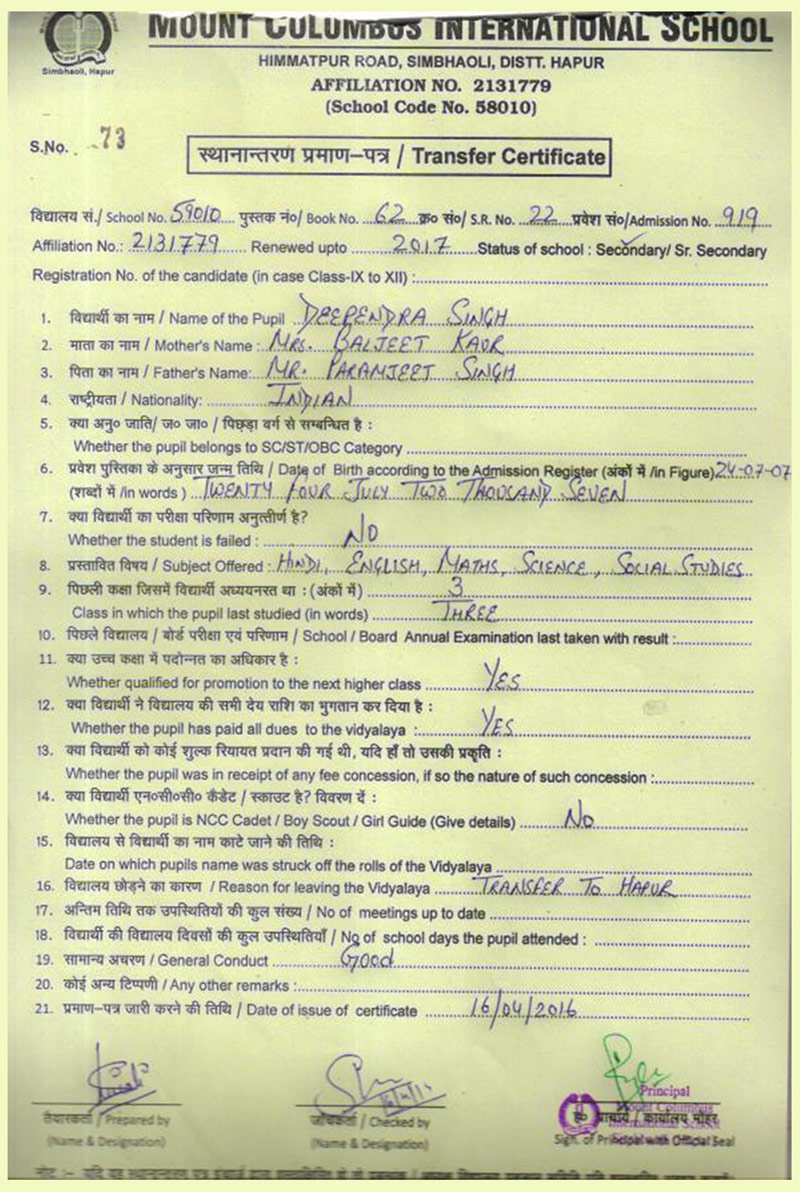 MOUNT COLUMBUS INTERNATIONAL SCHOOL
Simbhaoli, Hapur
HIMMATPUR ROAD, SIMBHAOLI, DISTT. HAPUR
AFFILIATION NO. 2131779
(School Code No. 58010)
S.No. 73
स्थानान्तरण प्रमाण–पत्र / Transfer Certificate
विद्यालय सं./ School No. 59010 पुस्तक नं०/ Book No. 62 क्र० सं०/ S.R. No. 22 प्रवेश सं०/Admission No. 919
Affiliation No.: 2131779 Renewed upto 2017 Status of school : Secondary/ Sr. Secondary
Registration No. of the candidate (in case Class-IX to XII) :
1. विद्यार्थी का नाम / Name of the Pupil DEEPENDRA SINGH
2. माता का नाम / Mother's Name : MRS. BALJEET KAUR
3. पिता का नाम / Father's Name: MR. PARAMJEET SINGH
4. राष्ट्रीयता / Nationality: INDIAN
5. क्या अनु० जाति/ ज० जा० / पिछड़ा वर्ग से सम्बन्धित है :
Whether the pupil belongs to SC/ST/OBC Category
6. प्रवेश पुस्तिका के अनुसार जन्म तिथि / Date of Birth according to the Admission Register (अंकों में /in Figure) 24-07-07
(शब्दों में /in words ) TWENTY FOUR JULY TWO THOUSAND SEVEN
7. क्या विद्यार्थी का परीक्षा परिणाम अनुत्तीर्ण है?
Whether the student is failed : NO
8. प्रस्तावित विषय / Subject Offered : HINDI, ENGLISH, MATHS, SCIENCE, SOCIAL STUDIES
9. पिछली कक्षा जिसमें विद्यार्थी अध्ययनरत था : (अंकों में ) 3
Class in which the pupil last studied (in words) THREE
10. पिछले विद्यालय / बोर्ड परीक्षा एवं परिणाम / School / Board Annual Examination last taken with result :
11. क्या उच्च कक्षा में पदोन्नत का अधिकार है :
Whether qualified for promotion to the next higher class YES
12. क्या विद्यार्थी ने विद्यालय की सभी देय राशि का भुगतान कर दिया है :
Whether the pupil has paid all dues to the vidyalaya : YES
13. क्या विद्यार्थी को कोई शुल्क रियायत प्रदान की गई थी, यदि हाँ तो उसकी प्रकृति :
Whether the pupil was in receipt of any fee concession, if so the nature of such concession :
14. क्या विद्यार्थी एन०सी०सी० कैडेट / स्काउट है? विवरण दें :
Whether the pupil is NCC Cadet / Boy Scout / Girl Guide (Give details) No
15. विद्यालय से विद्यार्थी का नाम काटे जाने की तिथि :
Date on which pupils name was struck off the rolls of the Vidyalaya
16. विद्यालय छोड़ने का कारण / Reason for leaving the Vidyalaya TRANSFER TO HAPUR
17. अन्तिम तिथि तक उपस्थितियों की कुल संख्या / No of meetings up to date
18. विद्यार्थी की विद्यालय दिवसों की कुल उपस्थितियाँ / No of school days the pupil attended :
19. सामान्य अचरण / General Conduct Good
20. कोई अन्य टिप्पणी / Any other remarks :
21. प्रमाण–पत्र जारी करने की तिथि / Date of issue of certificate 16/04/2016
Principal
Mount Columbus
International School
तैयारकर्ता / Prepared by जांचकर्ता / Checked by ह० प्राचार्य / कार्यालय मोहर
(Name & Designation) (Name & Designation) Sign. of Principal with Official Seal